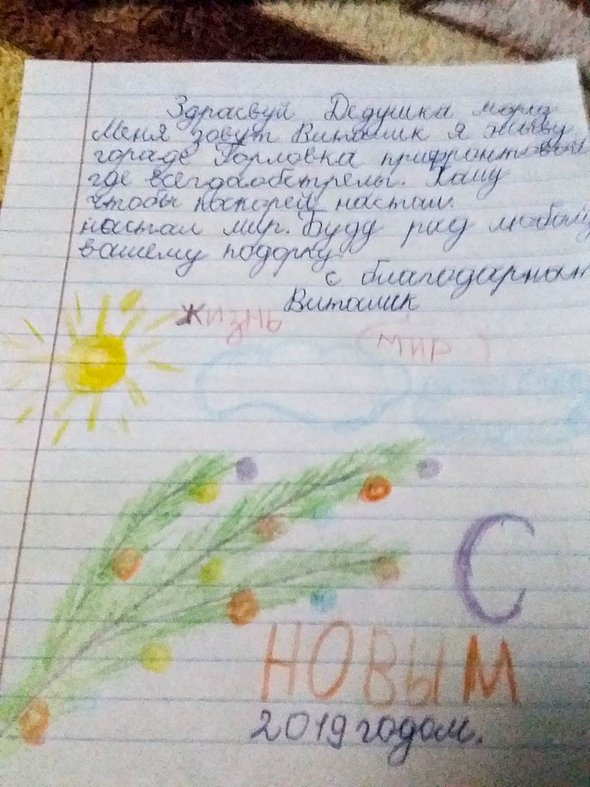 Здрасвуй Дедушка мороз
Меня зовут Виталик я живу
городе Горловка прифронтовой
где всегда обстрелы. Хачу
чтобы поскорей настал.
настал мир. Буду рад любому
вашему подорку
с благодарностью
Виталик
жизнь
(мир)
С
НОВЫМ
2019 годом.